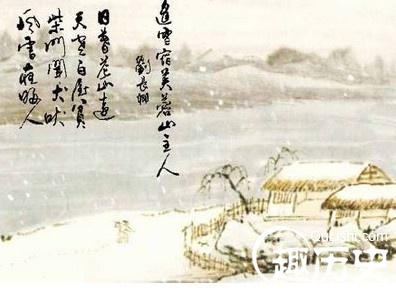 逢雪宿芙蓉山主人
劉長卿
日暮苍山遠
天寒白屋貧
柴門聞犬吠
風雪夜归人
趣历史